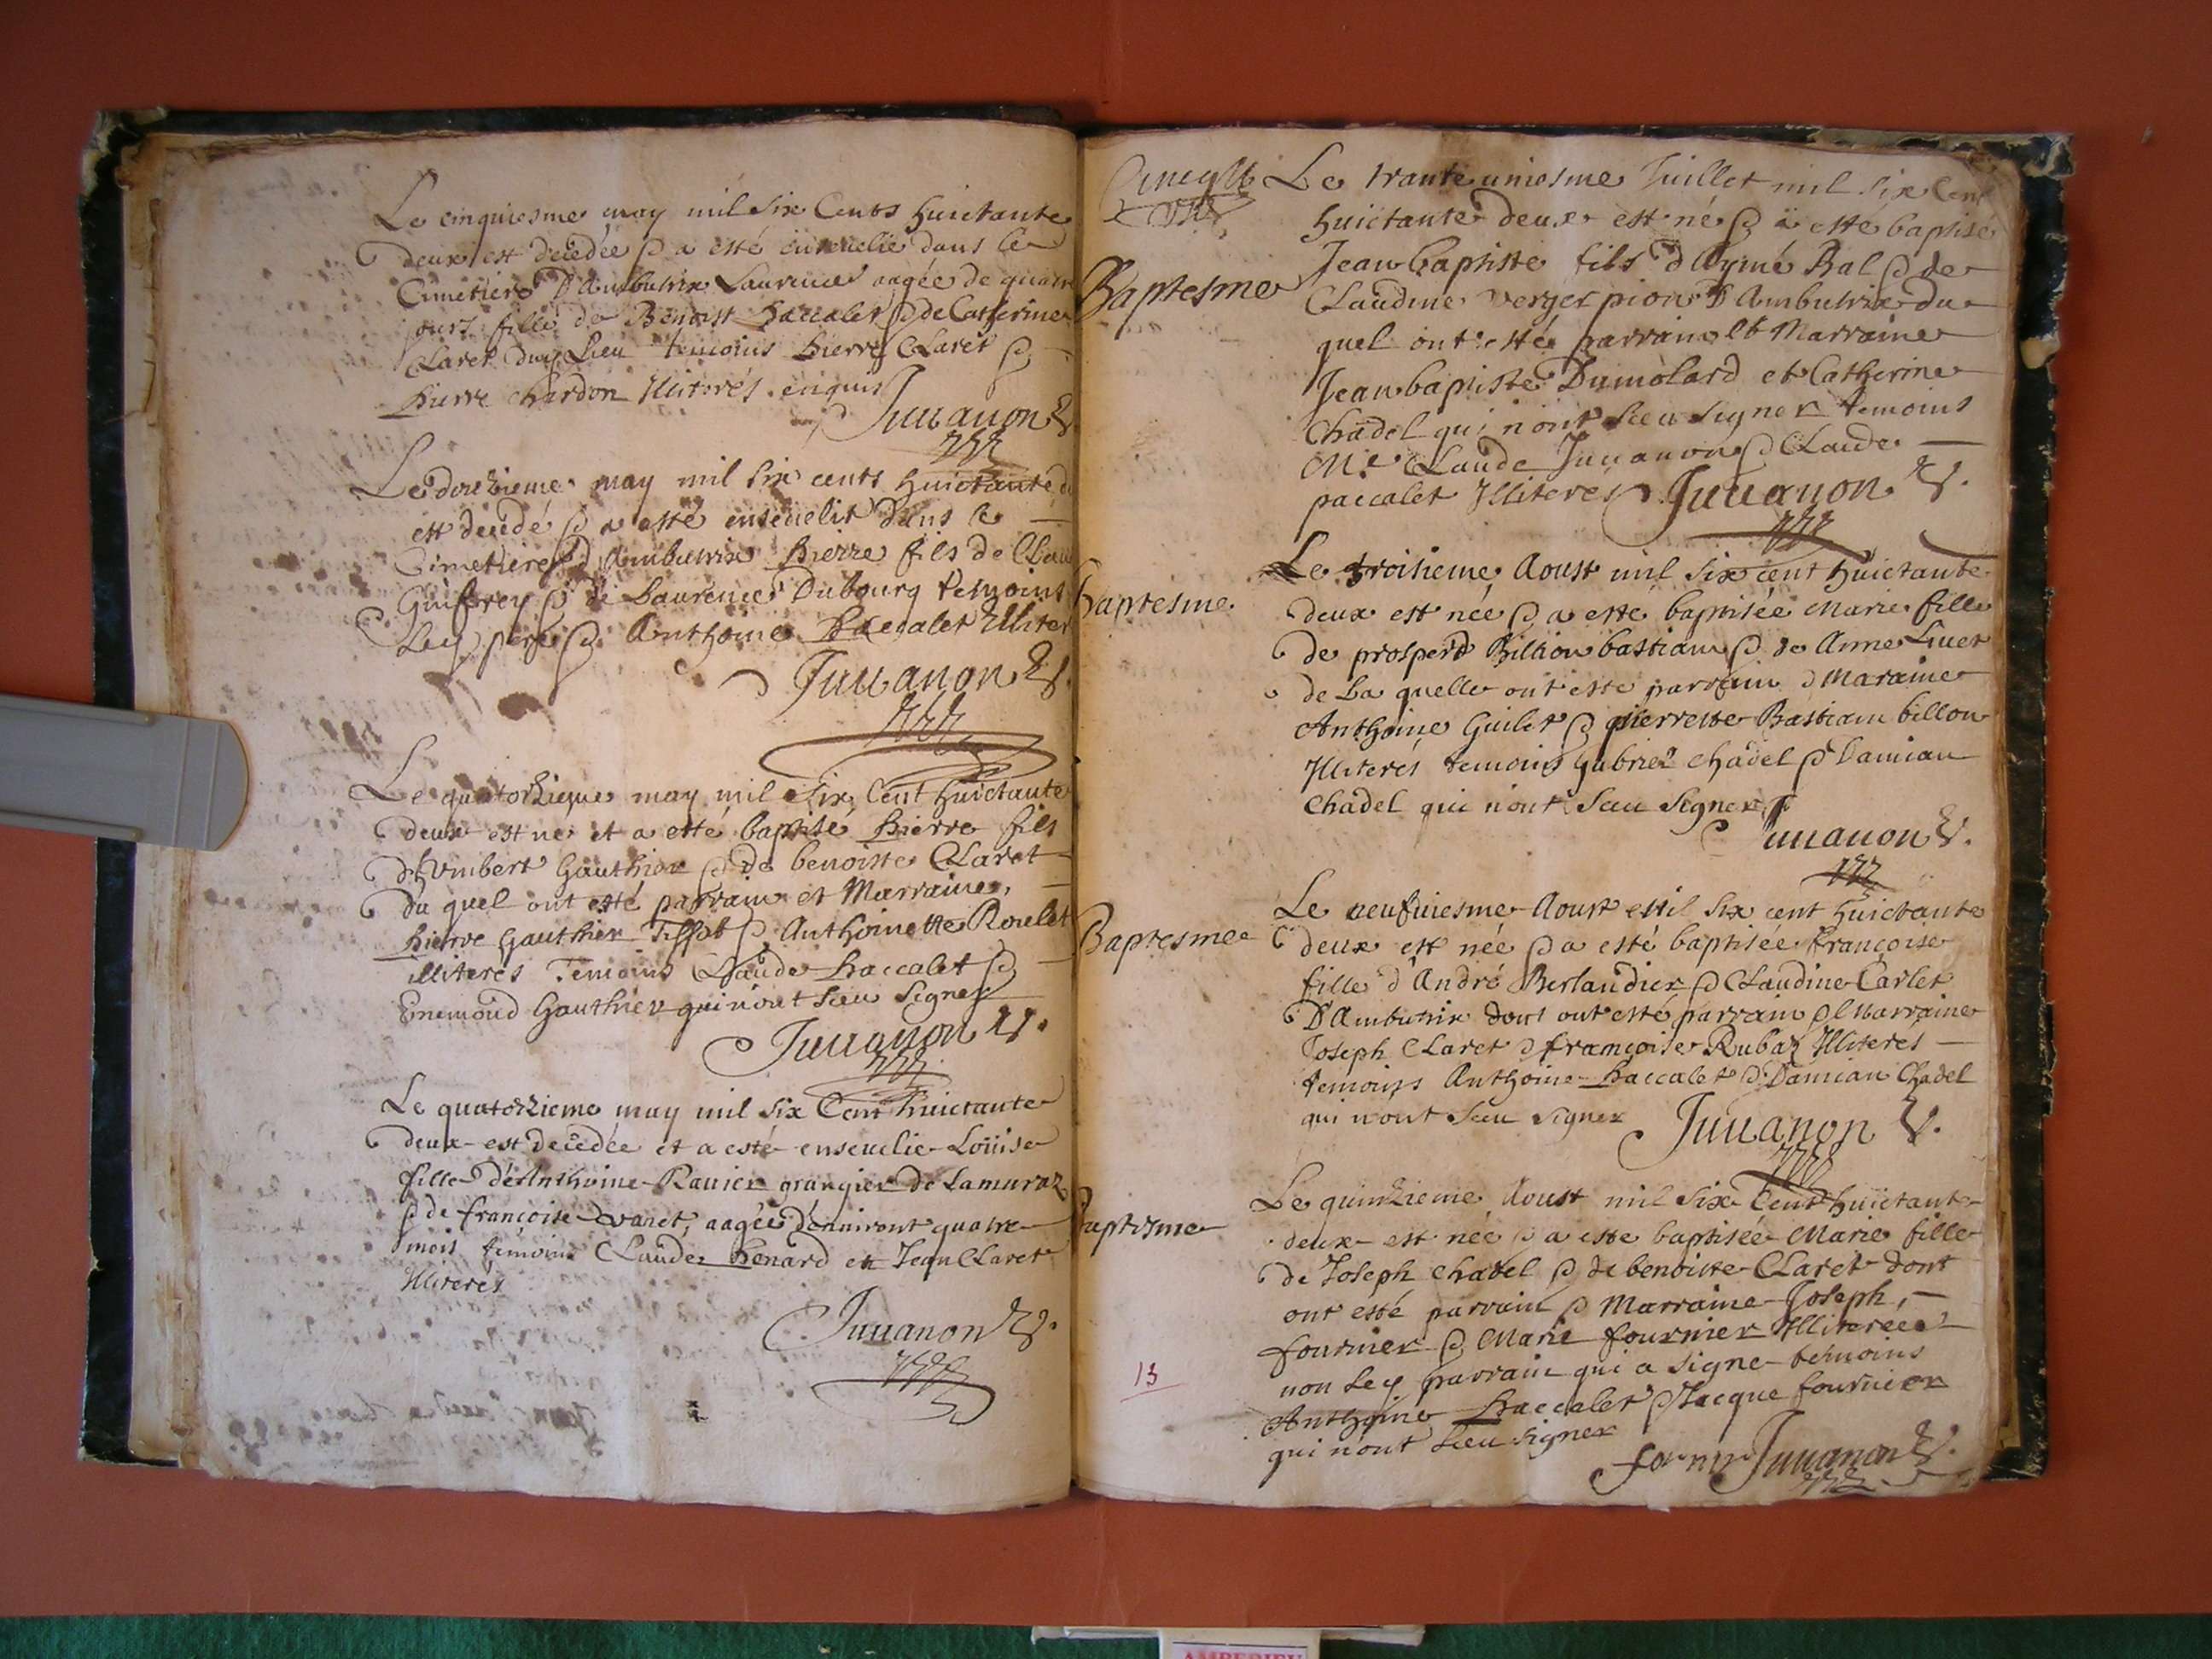 Le cinquiesme may mil Six Cents huictante
deux est decedée & a esté enseuelie dans le
Cimetiere D'Ambutrix Laurence aagée de quatre
jours fille de Benoist Paccalet & de Catherine
Claret dud Lieu temoins Pierre Claret &
Pierre Chardon Illiterés enquis
Juuanon
Le douzieme may mil Six cents huictante
est decedé & a esté enseuelit dans le
Cimetiere d'Ambutrix Pierre fils de Clau
Guifrey & de Laurence Dubourg temoins
Led pere & Anthoine Paccalet Illiter
Juuanon
Le quatorzieme may mil Six Cent huictante
deux est né et a esté baptisé Pierre fils
d'humbert Gauthier & de benoiste Claret
du quel ont esté parrain et Marraine,
Pierre Gauthier Tissot & Anthoinette Roulet
illiterés Temoins Claude Paccalet &
Enemond Gauthier qui n'ont sceu signer
Juuanon
Le quatorzieme may mil six Cent huictante
deux est decedée et a esté enseuelie Loüise
fille d'Anthoine Rauier grangier de Lamuraz
& de françoise varet, aagée d'enniront quatre
mois temoins Claude Penard et Jean Claret
Illiterés
Juuanon
Le trante uniesme Juillet mil six Cent
huictante deux est né & a esté baptisé
Jean baptiste fils d'Aymé Bal & de
Claudine verger pion D'Ambutrix du
quel ont esté parrain et Marraine
Jean baptiste Dumolard et Catherine
Chadel qui n'ont sceu signer temoins
Me Claude Juuanon & Claude
paccalet Illiteres Juuanon
Baptesme
Le troisieme Aoust mil six cent huictante
deux est née & a esté baptisée Marie fille
de prosperd Billion bastiam & de Anne Liuet
de La quelle ont esté parrain & Maraine
Anthoine Guilet & pierrette Bastiam billon
Illiterés temoins Gabriel chadel & Damian
Chadel qui n'ont Sceu Signer
Juuanon
baptesme
Le neufuiesme Aoust Mil Six cent huictante
deux est née & a esté baptisée françoise
fille d'André Berlandier & Claudine Carlet
D'Ambutrix dont ont esté parrain & Marraine
Joseph Claret & françoise Rubaz Illiterés
temoins Anthoine Paccalet & Damian Chadel
qui n'ont Sceu signer Juuanon
Baptesme
Le quinzieme Aoust mil six Cent huictante
deux est née & a esté baptisée Marie fille
de Joseph Chadel & de benoiste Claret dont
ont esté parrain & Marraine Joseph,
fournier & Marie fournier Illiterée
non Led parrain qui a signe temoins
Anthoine Paccalet & Jacque fournier
qui n'ont Sceu signer
Juuanon
Baptesme
13